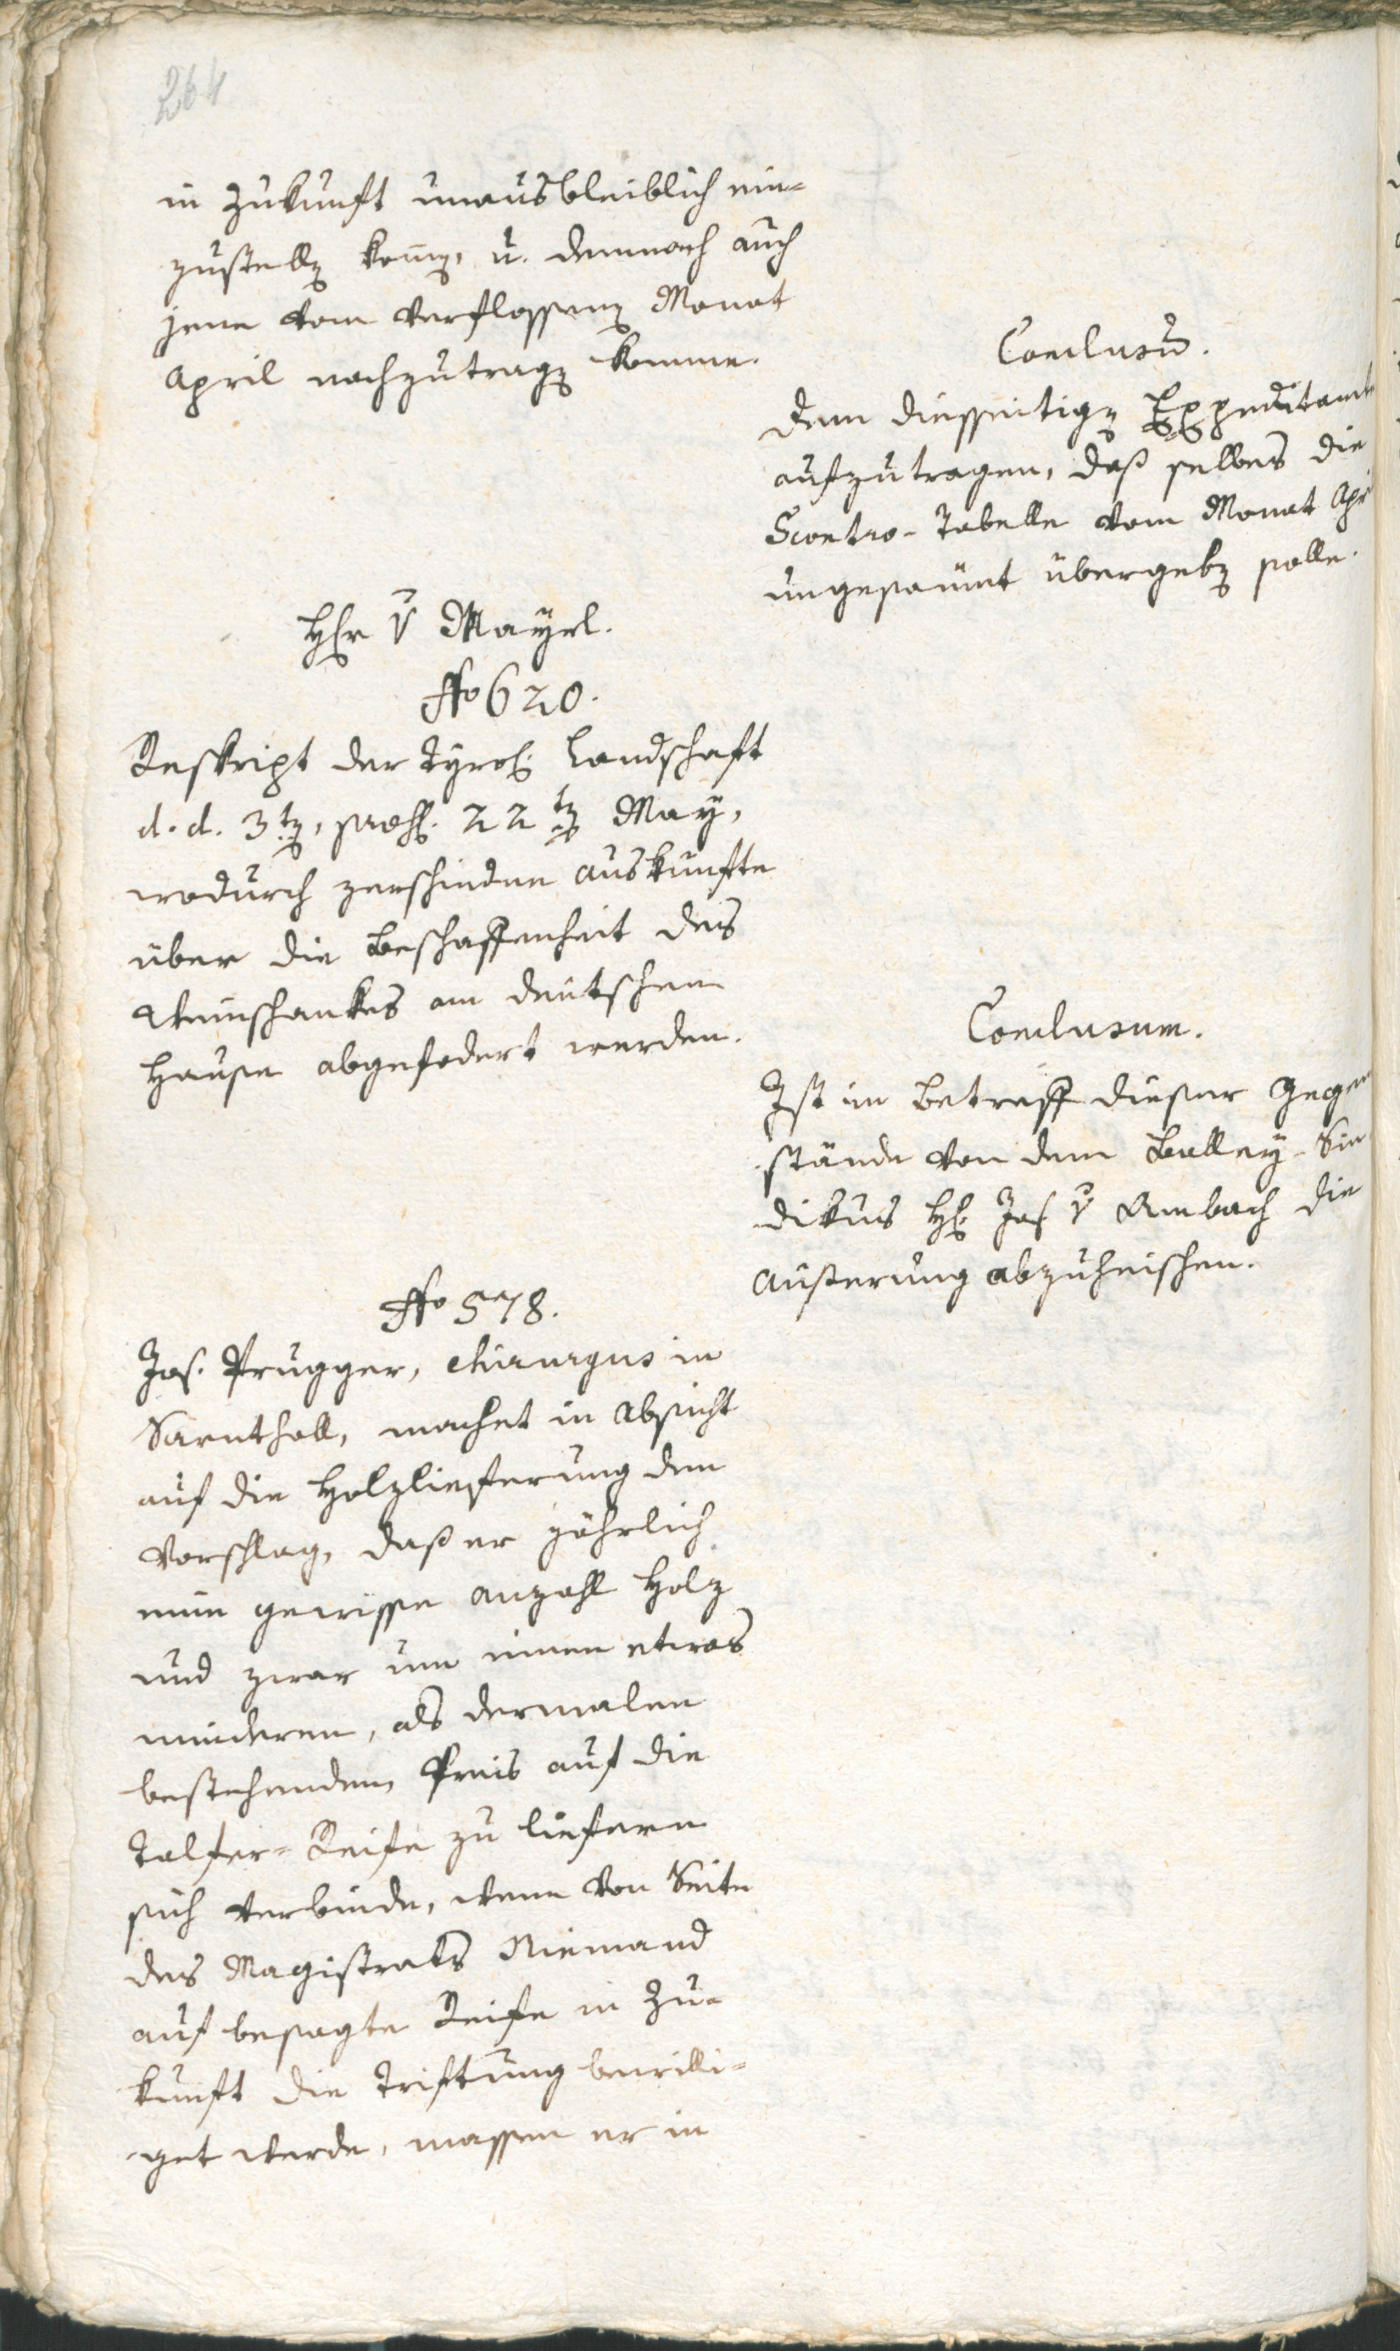 264
in Zukunft unausbleiblich ein-
zustellen komen, u. demnach auch
jene vom verflossenen Monat
April nachzutragen komme.
Conclusum.
Dem diesseitigen Expeditamte
aufzutragen, daß selbes die
Scontro-Tabelle vom Monat Apr
ungesäumt übergeben solle.
Herr v Mayrl.
No 620.
Reskript der Tyrol. Landschaft
d. d. 3ten, 22ten May,
wodurch zerschiedene Auskünfte
über die Beschaffenheit des
Weinschankes am deutschen
Hause abgefodert werden.
Conclusum.
Ist im Betreff dieser Gegen
stände von dem Balley-Sin
dikus H. Jos. v Ambach die
Äusserung abzuheischen.
No 578.
Jos. Prugger, chirurgus in
Sarnthall, machet in Absicht
auf die Holzlieferung den
Vorschlag, daß er jährlich
eine gewisse Anzahl Holz
und zwar um einen etwas
minderen, als dermalen
bestehenden Preis auf die
Talfer-Reife zu liefern
sich verbinde, wenn von Seite
des Magistrats Niemand
auf besagte Reife in Zu-
kunft die Triftung bewilli-
get werde, massen er in